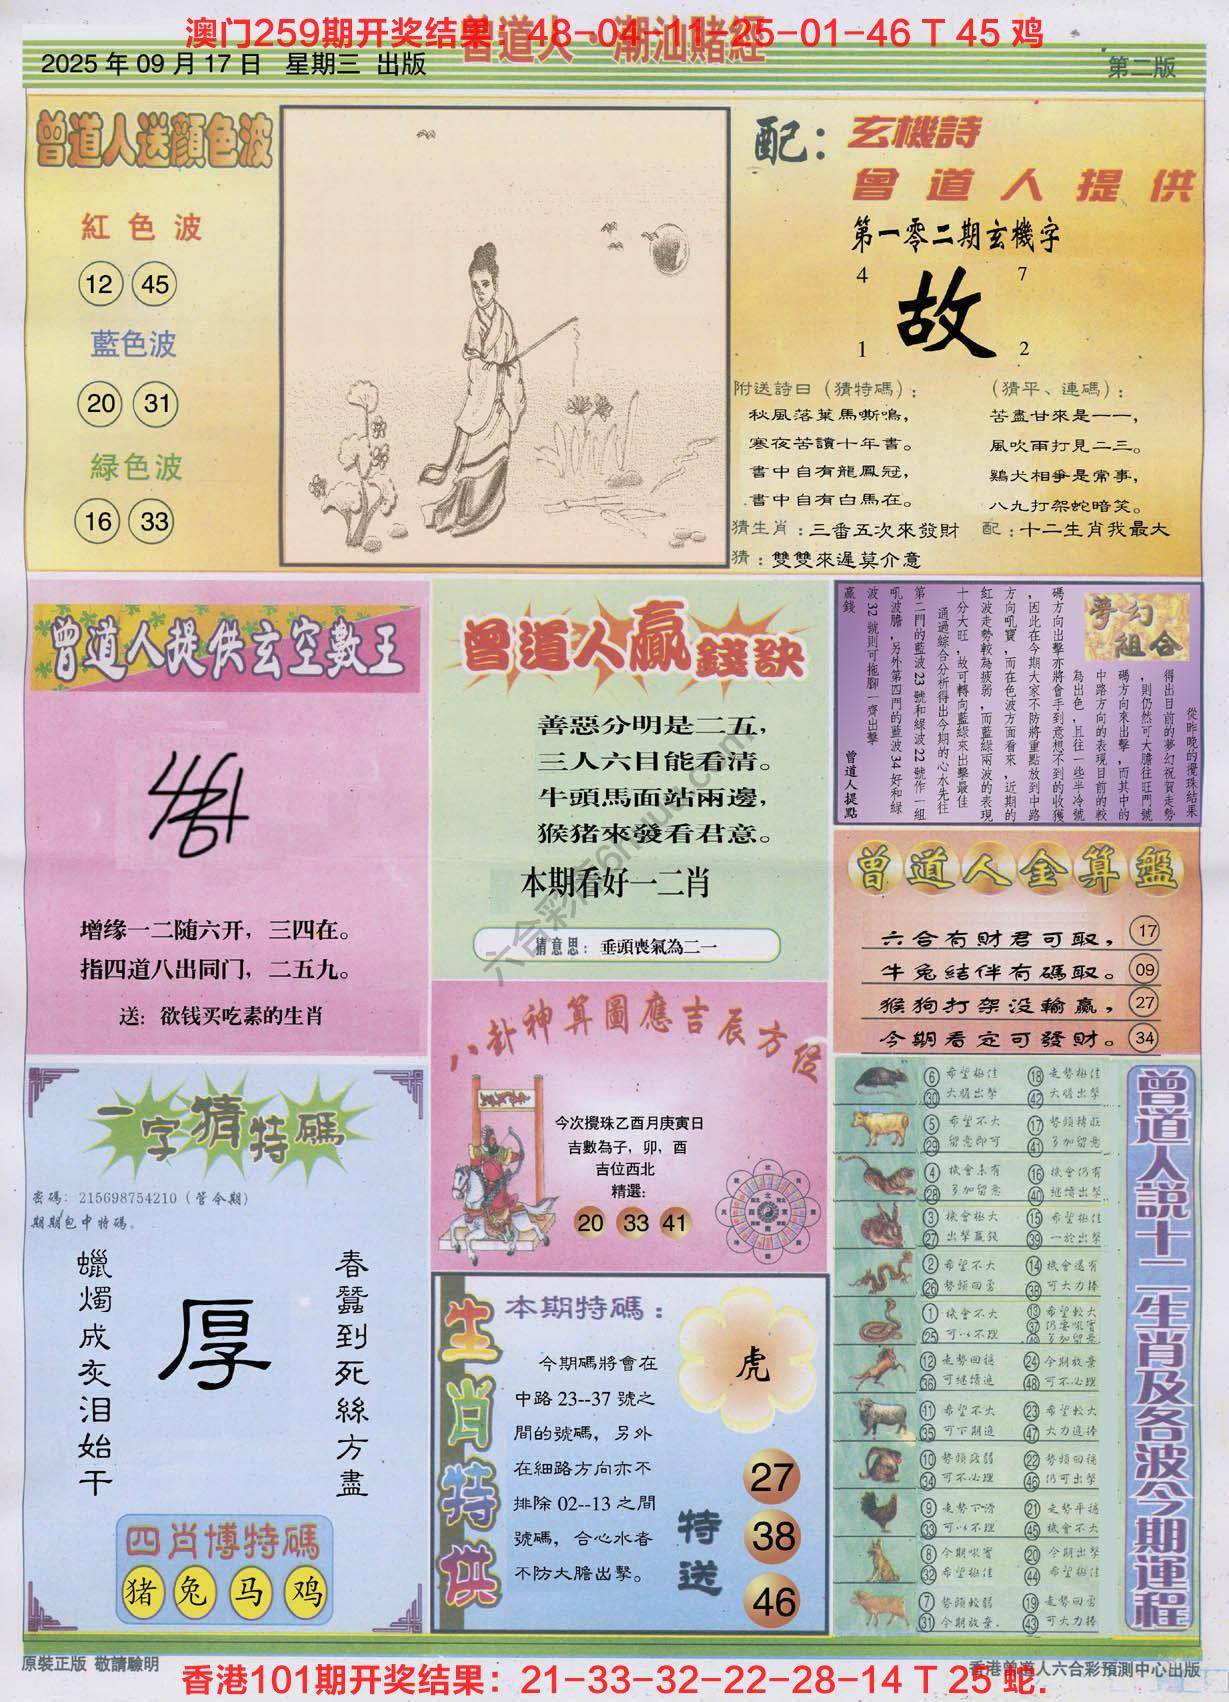 澳门259期开奖结果：48-04-11-25-01-46 T 45 鸡
曾道人·潮汕賭經
2025 年 09 月 17 日 星期三 出版
第二版
曾道人送顏色波
紅色波
12 45
藍色波
20 31
緑色波
16 33
配：
玄機詩
曾道人提供
第一零二期玄機字
4 7
故
1 2
附送詩日（猜特碼）：
秋風落葉馬嘶鳴，
寒夜苦讀十年書。
書中自有龍鳳冠，
書中自有白馬在。
（猜平、連碼）：
苦盡甘來是一一，
風吹雨打見二三。
鷄犬相爭是常事，
八九打架蛇暗笑。
猜生肖：三番五次來發財
配：十二生肖我最大
猜：雙雙來遲莫介意
曾道人提供玄空數王
增缘一二随六开，三四在。
指四道八出同门，二五九。
送：欲钱买吃素的生肖
曾道人贏錢訣
善惡分明是二五，
三人六目能看清。
牛頭馬面站兩邊，
猴猪來發看君意。
本期看好一二肖
猜意思：垂頭喪氣為二一
夢幻組合
從昨晚的攪珠結果
得出目前的夢幻祝賀走勢
，則仍然可大膽往旺門號
碼方向來出擊，而其中的
中路方向的表現目前的較
為出色，且往一些半冷號
碼方向出擊亦將會手到意想不到的收獲
，因此在今期大家不防將重點放到中路
方向吼寶，而在色波方面看來，近期的
紅波走勢較為疲弱，而藍綠兩波的表現
十分大旺，故可轉向藍綠來出擊最佳
通過綜合分析得出今期的心水先往
第二門的藍波 23 號和綠波 22 號作一組
吼波膽，另外第四門的藍波 34 好和綠
波 32 號則可拖腳一齊出擊
贏錢
曾道人提點
曾道人金算盤
六合有財君可取， 17
牛兔結伴有碼取。 09
猴狗打架没輸贏， 27
今期看定可發財。 34
八卦神算圖應吉辰方位
今次攪珠乙酉月庚寅日
吉數為子，卯，酉
吉位西北
精選：
20 33 41
一字猜特碼
密碼：215698754210（管今期）
期期包中特碼。
春蠶到死絲方盡
厚
蠟燭成灰泪始干
四肖博特碼
猪 兔 马 鸡
生肖特供
本期特碼：
今期碼將會在
中路 23--37 號之
間的號碼，另外
在細路方向亦不
排除 02--13 之間
號碼，合心水者
不防大膽出擊。
虎
特送
27
38
46
曾道人説十二生肖及各波今期運程
6 希望極佳 18 走勢極佳
30 大膽出擊 42 大膽出擊
5 希望不大 17 勢頭轉旺
29 留意即可 41 多加留意
4 機會未有 16 機會仍有
28 多加留意 40 繼續出擊
3 機會極大 15 希望極佳
27 出擊贏錢 39 一於出擊
2 希望不大 14 機會還有
26 勢頭回勇 38 可大力捧
1 機會不大 13 希望較大
25 可以不理 37 仍要吼實
多加留意
12 走勢回穩 24 今期放棄
36 可繼續追 48 可不必理
11 希望不大 23 希望較大
35 可下期追 47 大力追捧
10 勢頭疲弱 22 勢頭回穩
34 可不必理 46 仍可出擊
9 走勢下滑 21 走勢平穩
33 可以不理 45 機會不大
8 今期吼實 20 今期出擊
32 希望極佳 44 希望極佳
7 勢頭較弱 19 走勢回勇
31 今期放棄. 43 可大力捧
原裝正版 敬請驗明
香港曾道人六合彩預測中心出版
香港101期开奖结果：21-33-32-22-28-14 T 25 蛇.